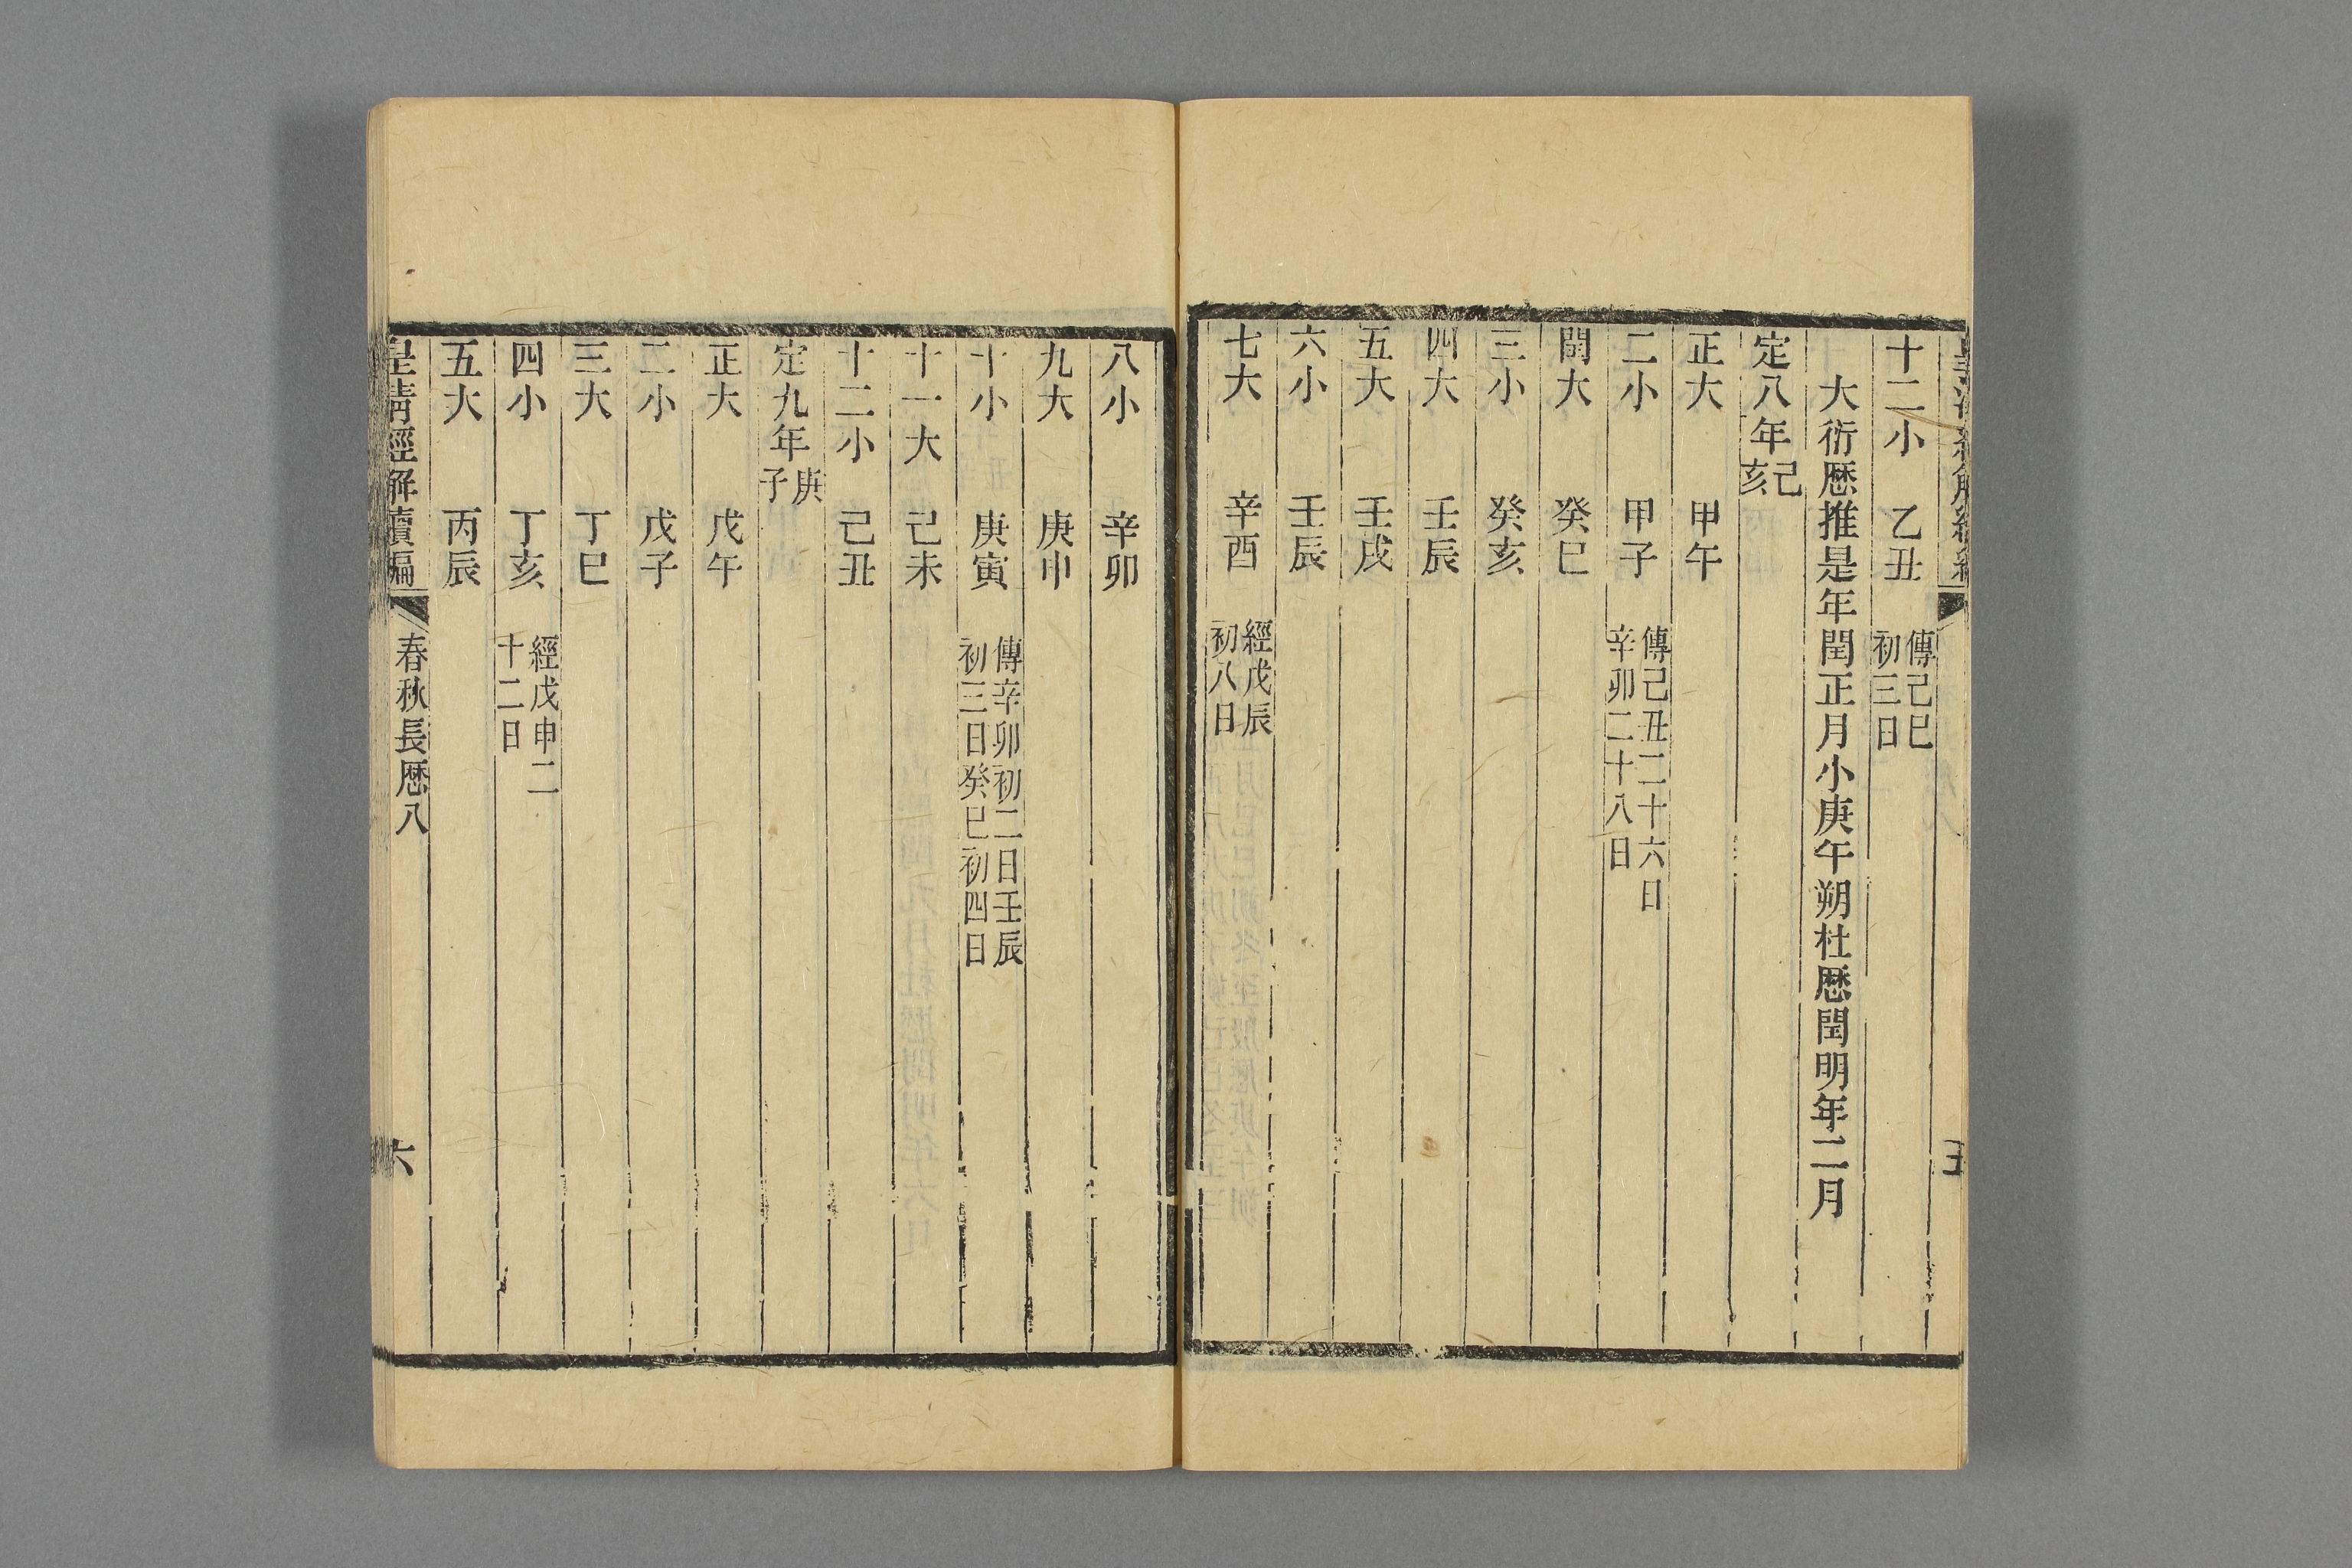 十二小 乙丑 傳己巳初三日
大衍厯推是年閏正月小庚午朔杜厯閏明年二月
定八年己亥
正大 甲午
二小 甲子 傳己丑二十六日辛卯二十八日
閏大 癸巳
三小 癸亥
四大 壬辰
五大 壬戌
六小 壬辰
七大 辛酉 經戊辰初八日
八小 辛卯
九大 庚申
十小 庚寅 傳辛卯初二日壬辰初三日癸巳初四日
十一大 己未
十二小 己丑
定九年庚子
正大 戊午
二小 戊子
三大 丁巳
四小 丁亥 經戊申二十二日
五大 丙辰
皇清經解續編 春秋長厯八 六